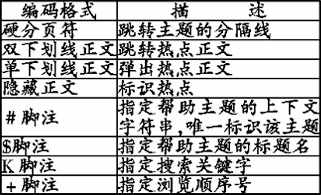 编码格式 描 述
硬分页符 跳转主题的分隔线
双下划线正文 跳转热点正文
单下划线正文 弹出热点正文
隐藏正文 标识热点
#脚注 指定帮助主题的上下文
字符串,唯一标识该主题
$脚注 指定帮助主题的标题名
K脚注 指定搜索关键字
+脚注 指定浏览顺序号